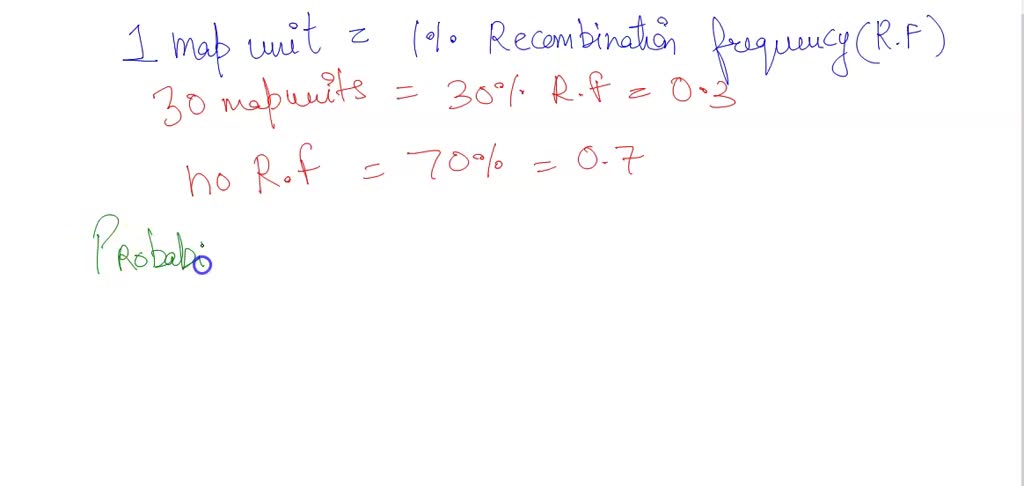 1 map unit = 1% Recombination frequency (R.F)
30 mapunits = 30% R.f = 0.3
no R.f = 70% = 0.7
Probabi